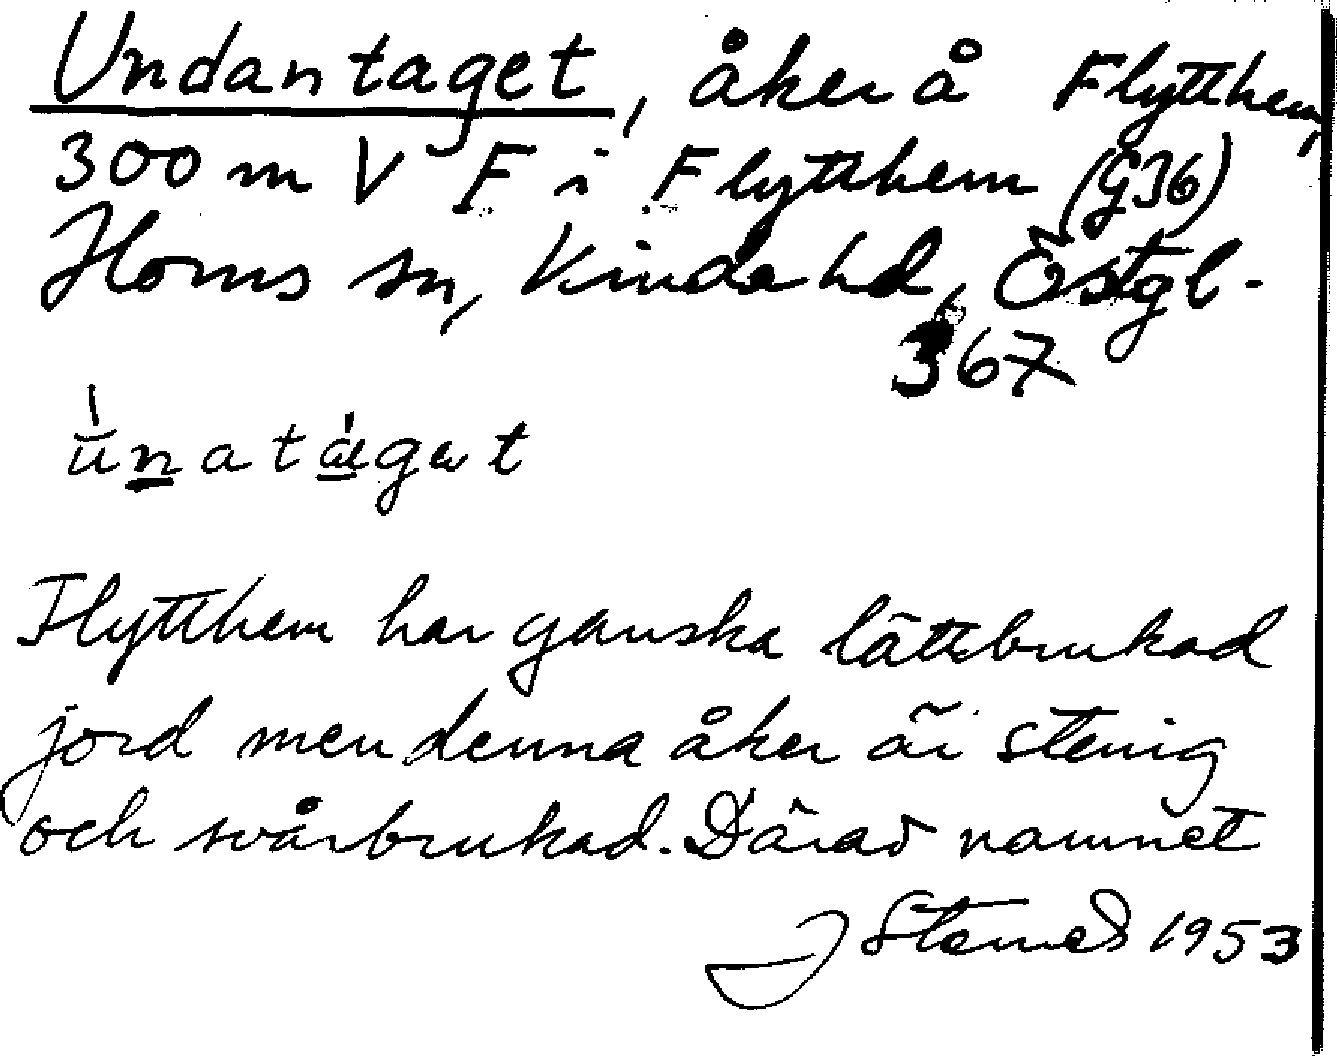 Undantaget, åker å Flytthem,
300 m V F i Flytthem (G36)
Horns sn, Kinda hd, Östgl.
367
Flytthem har ganska lättbrukad
jord men denna åker är stenig
och svårbrukad. Därav namnet
1953